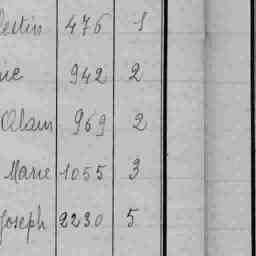 estin 476 1
ie 942 2
Alain 969 2
Marie 1055 3
Joseph 2230 5